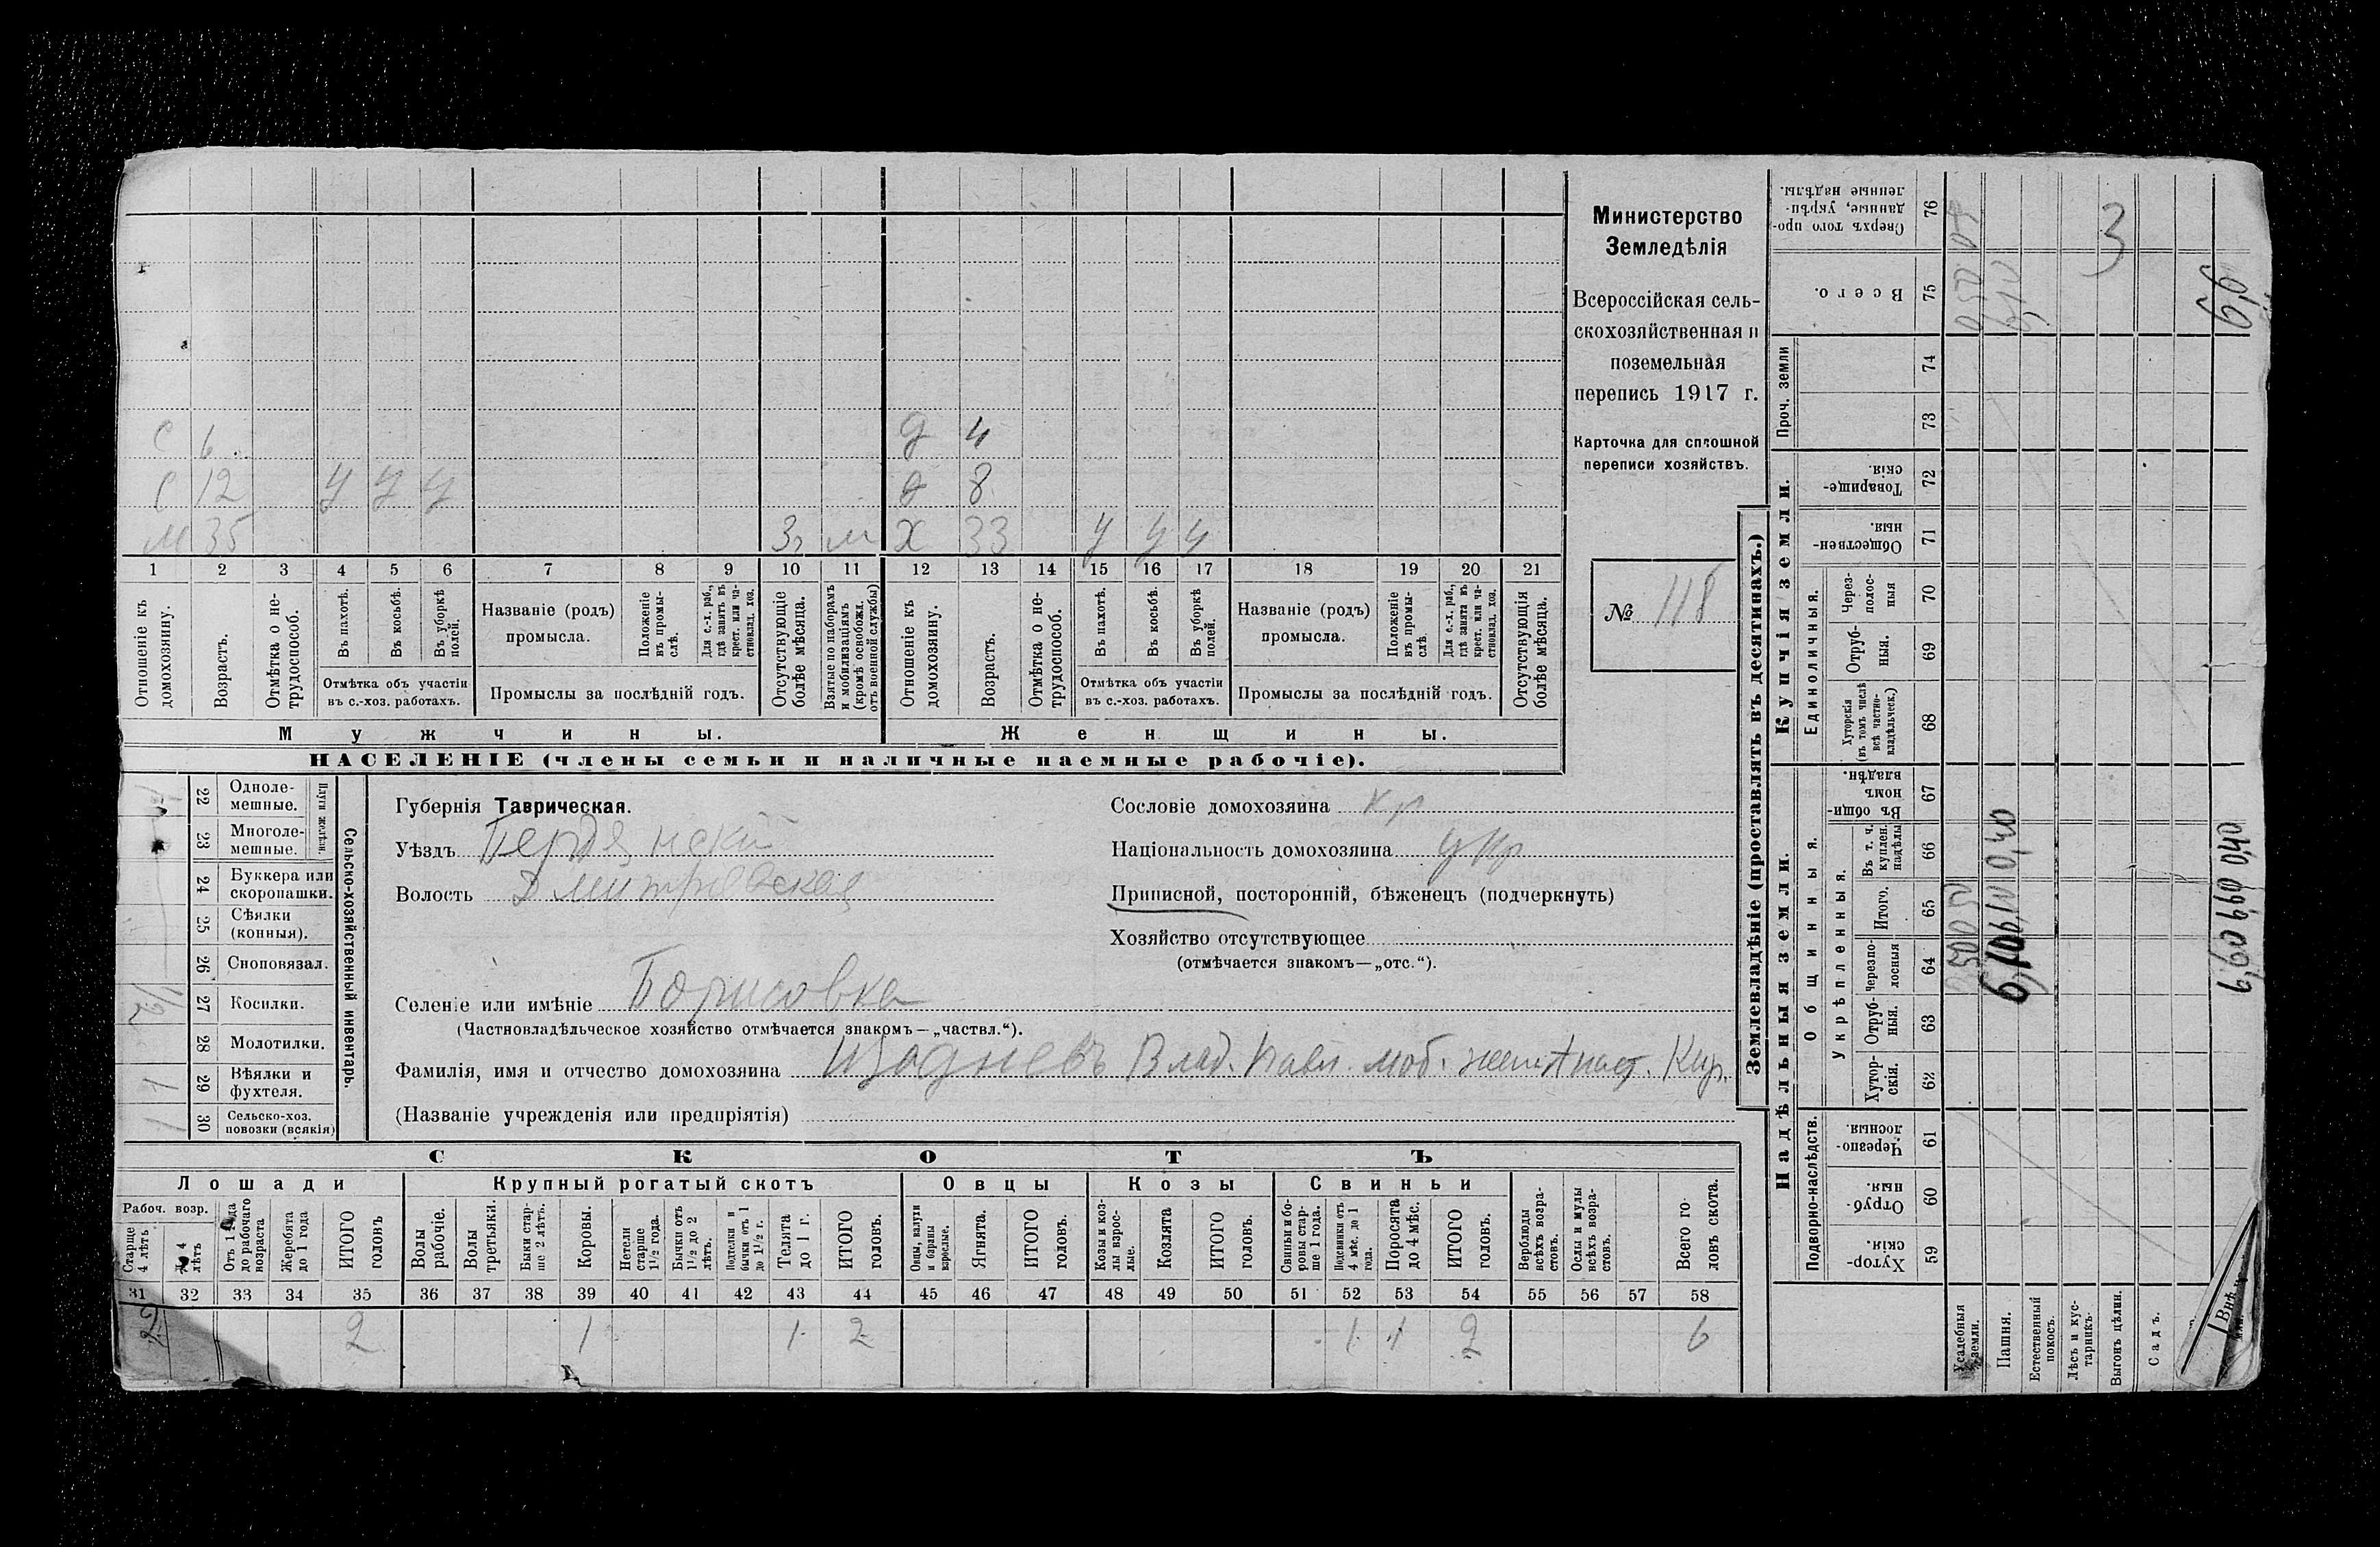 Министерство
Земледѣлія
Всероссійская сель-
скохозяйственная и
поземельная
перепись 1917 г.
Карточка для сплошной
переписи хозяйствъ.
№ 118
С 6 Д 4
С 12 У У У Д 8
М 35 3 г м Х 33 У У У
1 2 3 4 5 6 7 8 9 10 11 12 13 14 15 16 17 18 19 20 21
Отношеніе къ домохозяину.
Возрастъ.
Отмѣтка о не-трудоспособ.
Въ пахотѣ.
Въ косьбѣ.
Въ уборкѣ полей.
Отмѣтка объ участіи
въ с.-хоз. работахъ.
Названіе (родъ)
промысла.
Положеніе въ промы-слѣ.
Для с.-х. раб., гдѣ занятъ въ крест. или ча-стновлад. хоз.
Промыслы за послѣдній годъ.
Отсутствующіе болѣе мѣсяца.
Взятые по наборамъ и мобилизаціямъ (кромѣ освобожд. отъ военной службы)
Отношеніе къ домохозяину.
Возрастъ.
Отмѣтка о не-трудоспособ.
Въ пахотѣ.
Въ косьбѣ.
Въ уборкѣ полей.
Отмѣтка объ участіи
въ с.-хоз. работахъ.
Названіе (родъ)
промысла.
Положеніе въ промы-слѣ.
Для с.-х. раб., гдѣ занята въ крест. или ча-стновлад. хоз.
Промыслы за послѣдній годъ.
Отсутствующія болѣе мѣсяца.
Мужчины. Женщины.
НАСЕЛЕНІЕ (члены семьи и наличные наемные рабочіе).
Сельско-хозяйственный инвентарь.
Плуги желѣзн.
22 Одноле-мешные.
23 Многоле-мешные.
24 Буккера или скоропашки.
25 Сѣялки (конныя).
26 Сноповязал.
27 Косилки. 1/2
28 Молотилки.
29 Вѣялки и фухтеля. 1
30 Сельско-хоз. повозки (всякія) 1
Губернія Таврическая.
Уѣздъ Бердянскій
Волость Дмитровская
Сословіе домохозяина кр
Національность домохозяина укр
Приписной, посторонній, бѣженецъ (подчеркнуть)
Хозяйство отсутствующее
(отмѣчается знакомъ—„отс.“).
Селеніе или имѣніе Борисовка
(Частновладѣльческое хозяйство отмѣчается знакомъ—„частвл.“).
Фамилія, имя и отчество домохозяина Влад. Павл. моб. жена Наст. Кир.
(Названіе учрежденія или предпріятія)
СКОТЪ
Лошади Крупный рогатый скотъ Овцы Козы Свиньи
Рабоч. возр.
Старше 4 лѣтъ
До 4 лѣтъ
Отъ 1 года до рабочаго возраста
Жеребята до 1 года
ИТОГО головъ
Волы рабочіе.
Волы третьяки.
Быки стар-ше 2 лѣтъ.
Коровы.
Нетели старше 1½ года.
Бычки отъ 1½ до 2 лѣтъ.
Подтелки и бычки отъ 1 до 1½ г.
Телята до 1 г.
ИТОГО головъ.
Овцы, валухи и бараны взрослые.
Ягнята.
ИТОГО головъ.
Козы и коз-лы взрос-лые.
Козлята
ИТОГО головъ.
Свиньи и бо-ровы стар-ше 1 года.
Подсвинки отъ 4 мѣс. до 1 года.
Поросята до 4 мѣс.
ИТОГО головъ.
Верблюды всѣхъ возра-стовъ.
Ослы и мулы всѣхъ возра-стовъ.
Всего го-ловъ скота.
31 32 33 34 35 36 37 38 39 40 41 42 43 44 45 46 47 48 49 50 51 52 53 54 55 56 57 58
2 2 1 1 2 1 1 2 6
Землевладѣніе (проставлять въ десятинахъ.)
Надѣльныя земли. Купчія земли.
Подворно-наслѣдств.
Общинныя.
Укрѣпленныя.
Единоличныя.
Проч. земли
59 Хутор-скія.
60 Отруб-ныя.
61 Черезпо-лосныя.
62 Хутор-скія.
63 Отруб-ныя.
64 Черезпо-лосныя
65 Итого.
66 Въ т. ч. куплен. надѣлы
67 Въ общи-номъ владѣн.
68 Хуторскія (въ томъ числѣ всѣ частно-владѣльческ.)
69 Отруб-ныя.
70 Через-полос-ныя
71 Обществен-ныя.
72 Товарище-скія.
73
74
75 Всего.
76 Сверхъ того про-данные, укрѣп-ленные надѣлы.
Усадебныя земли. 0,50 0,50 0,50
Пашня. 6,10 6,10 0,40 6,10
Естественный покосъ.
Лѣсъ и кус-тарникъ.
Выгонъ цѣлин. 3
Садъ.
6,60 6,60 0,40 6,6